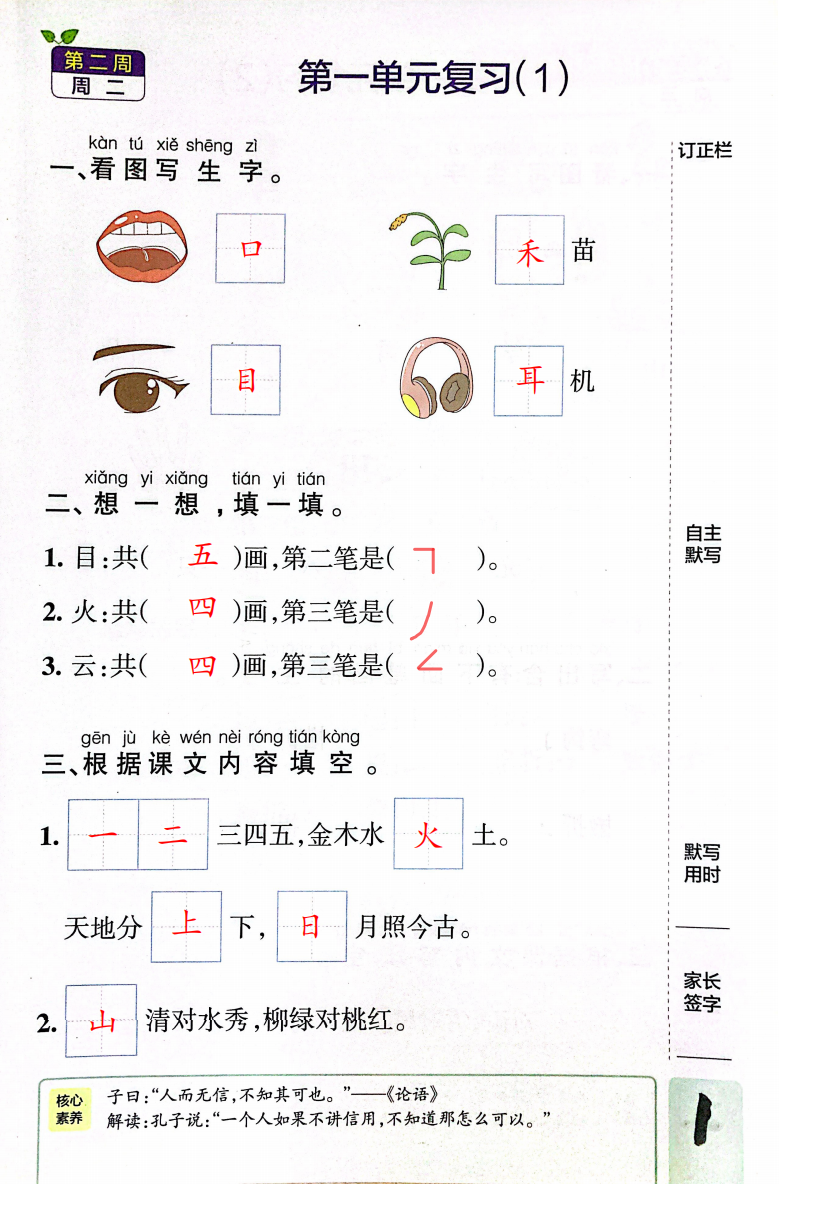 第二周
周二
第一单元复习(1)
订正栏
kàn tú xiě shēng zì
一、看图写生字。
口
禾苗
目
耳机
xiǎng yi xiǎng tián yi tián
二、想一想,填一填。
1. 目:共( 五 )画,第二笔是( ㇕ )。
2. 火:共( 四 )画,第三笔是( 丿 )。
3. 云:共( 四 )画,第三笔是( ㇜ )。
自主
默写
gēn jù kè wén nèi róng tián kòng
三、根据课文内容填空。
1. 一二三四五,金木水火土。
天地分上下,日月照今古。
2. 山清对水秀,柳绿对桃红。
默写
用时
家长
签字
核心
素养
子曰:“人而无信,不知其可也。”——《论语》
解读:孔子说:“一个人如果不讲信用,不知道那怎么可以。”
1